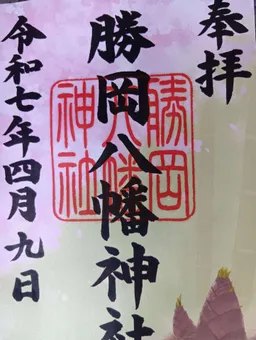 奉拝
勝岡八幡神社
勝岡八幡神社
令和七年四月九日